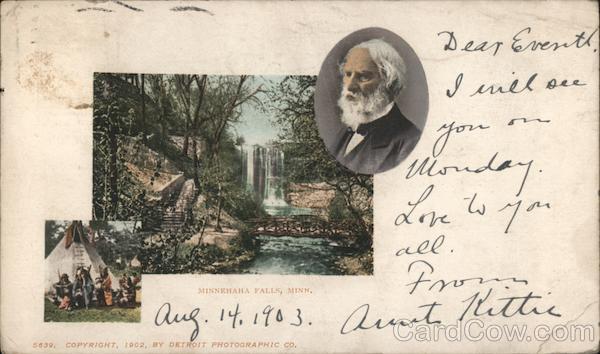 Dear Everett.
I will see
you on
Monday.
Love to you
all.
From
Aunt Kittie
MINNEHAHA FALLS, MINN.
Aug. 14, 1903.
5639. COPYRIGHT, 1902, BY DETROIT PHOTOGRAPHIC CO.
CardCow.com